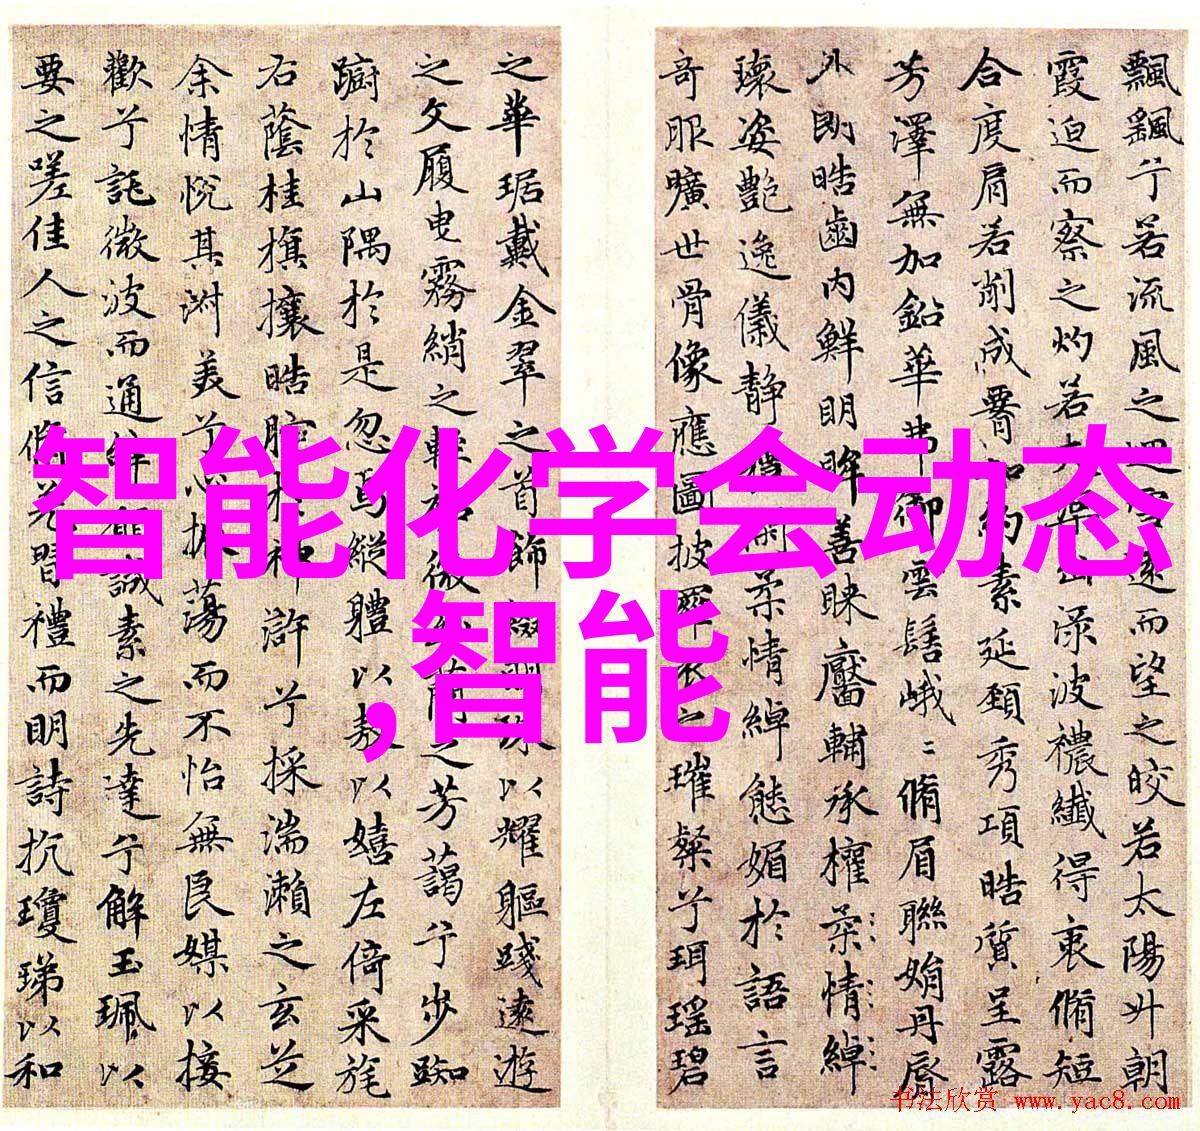 飄飖兮若流風之迴雪遠而望之皎若太陽升朝
霞迫而察之灼若出渌波襛纖得衷脩短
合度肩若削成如約素延頸秀項皓質呈露
芳澤無加鉛華弗御雲髻峨〻脩眉聯娟丹脣
外朗皓齒內鮮明眸善睞靨輔承權柔情綽
瓌姿艷逸儀靜閑柔情綽態媚於語言
奇服曠世骨像應圖披之璀粲兮珥瑤碧
之華琚戴金翠之首飾以耀軀踐遠遊
之文履曳霧綃之輕微之芳藹兮步踟
蹰於山隅於是忽焉縱體以敖以嬉左倚采旄
右蔭桂旗攘皓腕於神滸兮採湍瀨之玄芝
余情悅其淑美兮心振蕩而不怡無良媒以接
歡兮託微波而通誠素之先達兮解玉珮以
要之嗟佳人之信脩羌習禮而明詩抗瓊珶以和
智能化学会动态
,智能
书法欣赏 www.yac8.com